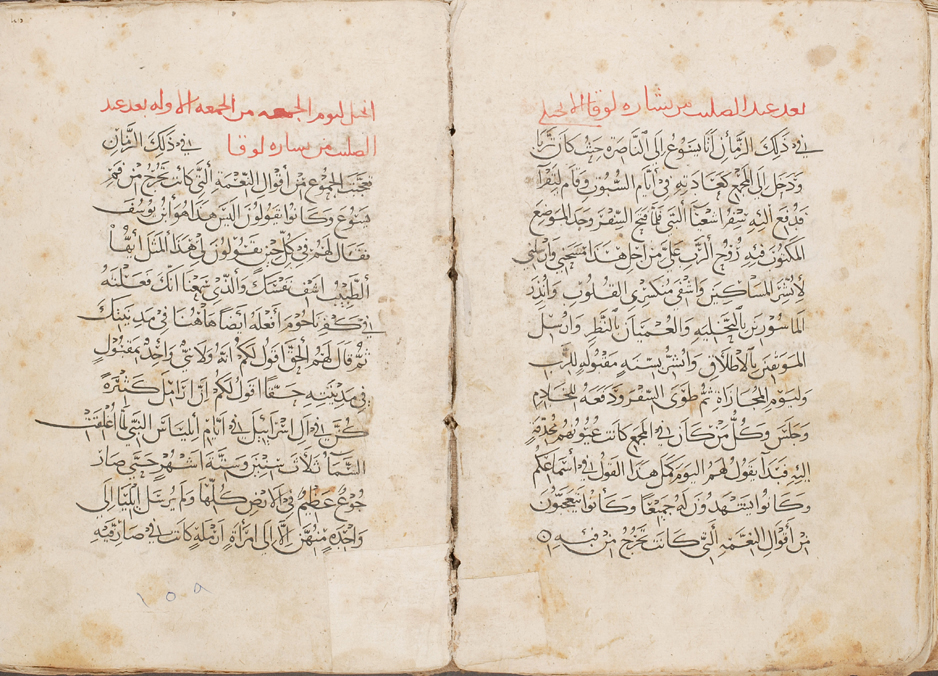 بعد عيد الصليب من بشاره لوقا الانجيلي
في ذلك الزمان اتا يسوع الى الناصره حيث كان تربا
ودخل الى المجمع كعادته في ايام السبوت وقام ليقرا
فدفع اليه سفر اشعيا النبي فلما فتح السفر وجد الموضع
المكتوب فيه روح الرب علي من اجل هذا مسحني وارسلني
لابشر المساكين واشفي منكسري القلوب وانذر
الماسورين بالتخليه والعميان بالنظر وارسل
الموثقين بالاطلاق وابشر بسنه مقبوله للرب
وليوم المجازاه ثم طوى السفر ودفعه للخادم
وجلس وكل من كان في المجمع كانت عيونهم محدقه
اليه فبدا يقول لهم اليوم كمل هذا القول في اسماعكم
وكانوا يشهدون له جميعا وكانوا يتعجبون
من أقوال النعمه التي كانت تخرج من فيه
انجيل ليوم الجمعه من الجمعه الاوله بعد عيد
الصليب من بشاره لوقا في ذلك الزمان
تعجبت الجموع من أقوال النعمه التي كانت تخرج من فم
يسوع وكانوا يقولون اليس هذا هو ابن يوسف
فقال لهم في كل حين تقولون لي هذا المثل ايها
الطبيب اشف نفسك والذي سمعنا انك فعلته
في كفرناحوم افعله أيضا هاهنا في مدينتك
ثم قال لهم الحق اقول لكم انه ولا نبي واحد بمقبول
في مدينته حقا اقول لكم ان ارامل كثيرة
كن في ال اسرائيل في أيام ايلياس النبي لما أغلقت
السما ثلاث سنين وستة اشهر حتي صار
جوع عظيم في الارض كلها ولم يرسل ايليا الى
واحده منهن الا الى امراة ارملة كانت في صارفيه
١٥٨